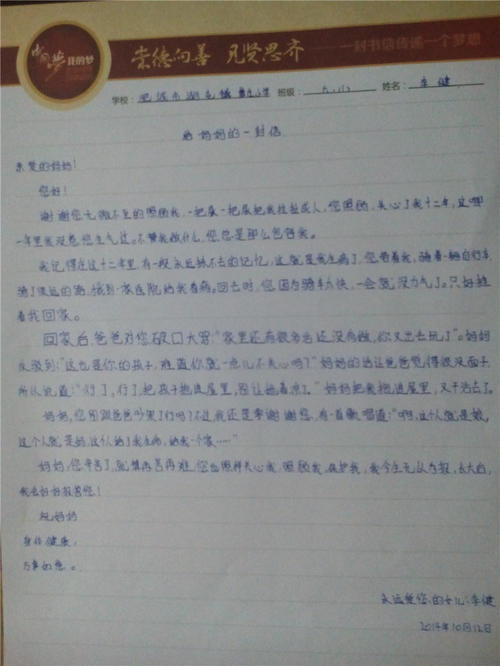 中国梦 我的梦
崇德向善 见贤思齐
一封书信传递一个梦想
学校: 肥城市湖屯镇 小学 班级: 六 姓名: 李健
给妈妈的一封信
亲爱的妈妈！
您好！
谢谢您无微不至的照顾我，一把尿一把尿把我拉扯成人，您照顾、关心了我十二年，这哪
一年里我没惹您生气过。不管我做什么，您总是那么包容我。
我记得在这十二年里，有一段永远抹不去的记忆，这就是我生病了，您带着我，骑着一辆自行车
骑了很远的路，找到一家医院给我看病。回去时，您因为骑车太快，一会就没力气了。只好推
着我回家。
回家后，爸爸对您破口大骂："家里还有很多活还没有做，你又出去玩了"。妈妈
反驳到："这也是你的孩子，难道你就一点儿不关心吗？"妈妈的话让爸爸觉得很没面子，
所以说道："行了，行了，把孩子抱进屋里，别让她着凉了。"妈妈把我抱进屋里，又干活去了。
妈妈，您别跟爸爸吵架了行吗？不过我还是要谢谢您，有一首歌唱道："啊，这个人就是娘，
这个人就是妈，这个人给了我生命，给我一个家……"
妈妈，您辛苦了，就算再苦再难，您也照样关心我，照顾我，保护我，我今生无以为报，长大后，
我会好好报答您！
祝妈妈
身体健康，
万事如意。
永远爱您的女儿：李健
2014年10月12日